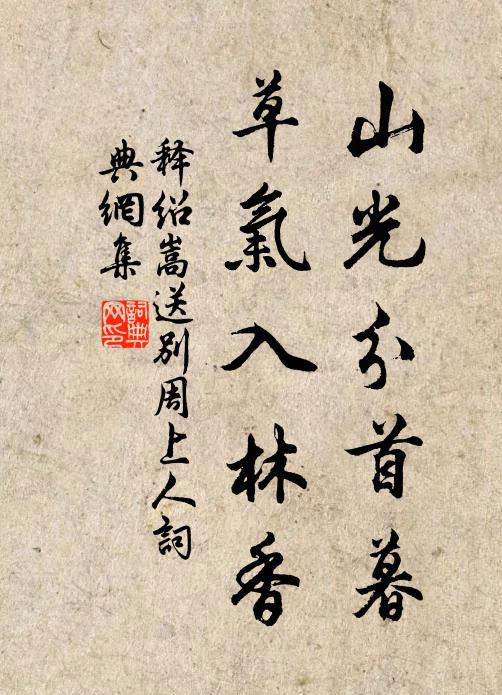 山光分首暮
草氣入林香
释绍嵩送別周上人詞
典網集
詞典
网印